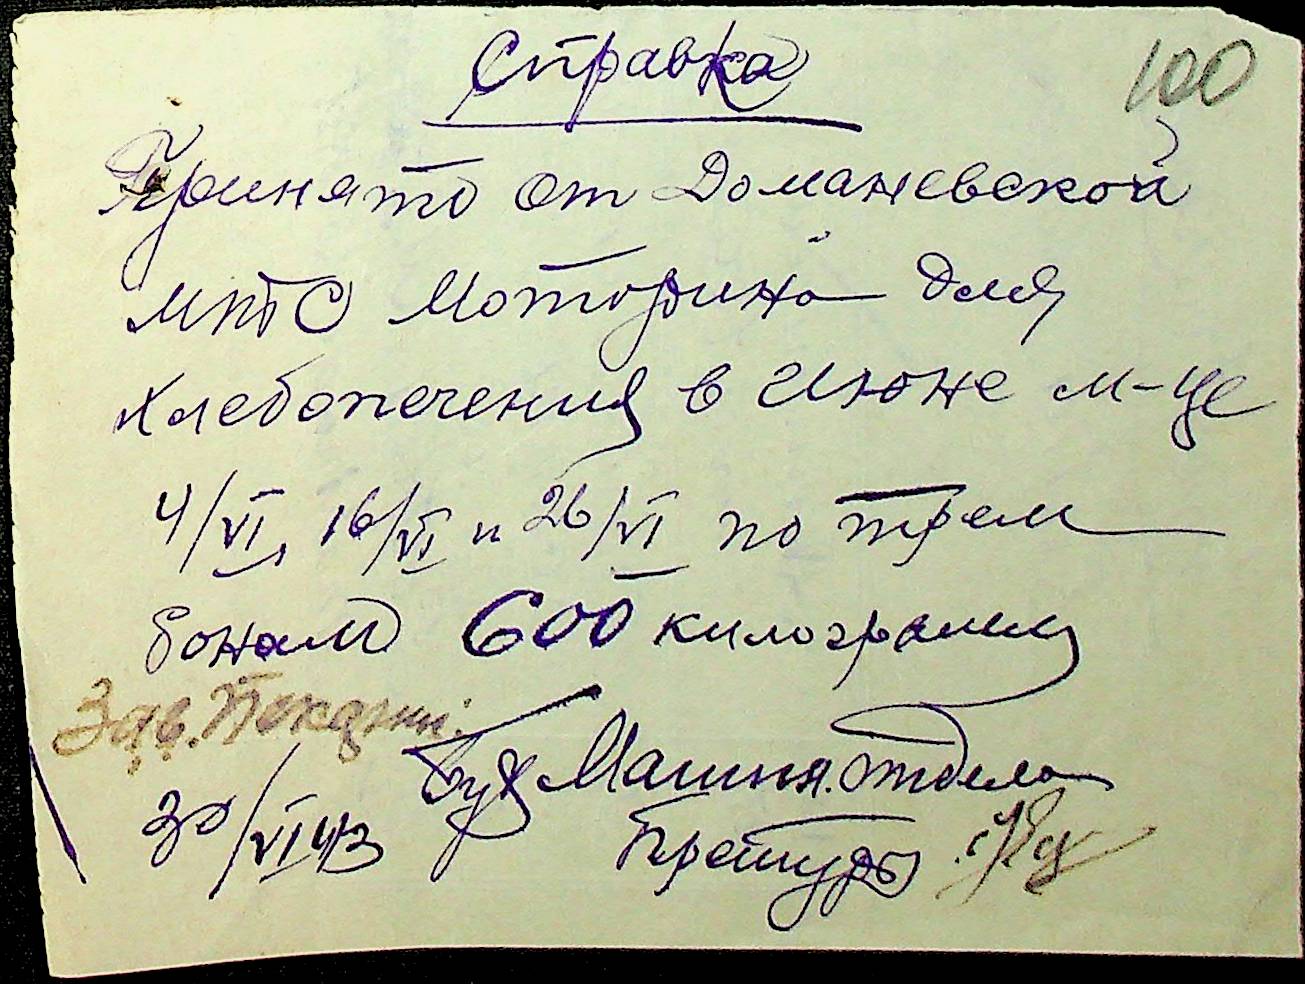 Справка
100
Принято от Доманевской
МТС Моторина для
хлебопечения в Июне м-це
4/VI, 16/VI и 26/VI по трем
бонам 600 килограмм
Зав. Пекарни:
Бух Машин. отдела
30/VI 43 Претуры